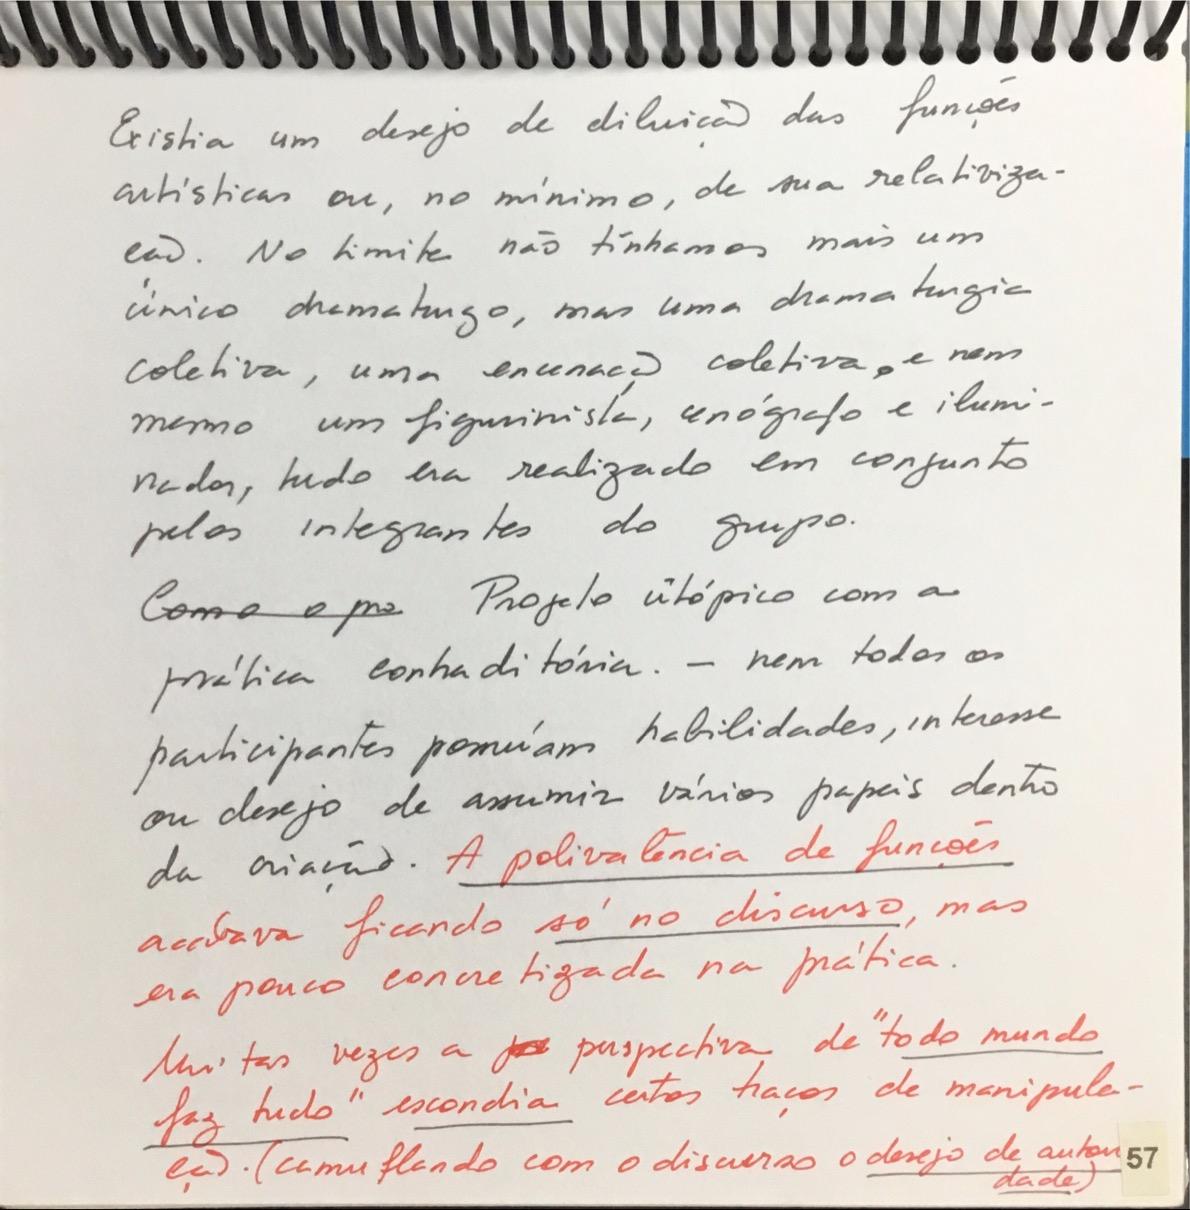 Existia um desejo de diluição das funções
artísticas ou, no mínimo, de sua relativiza-
ção. No limite não tínhamos mais um
único dramaturgo, mas uma dramaturgia
coletiva, uma encenação coletiva, e nem
mesmo um figurinista, cenógrafo e ilumi-
nador, tudo era realizado em conjunto
pelos integrantes do grupo.
Como o pro Projeto utópico com a
prática contraditória. – nem todos os
participantes possuíam habilidades, interesse
ou desejo de assumir vários papeis dentro
da criação. A polivalência de funções
acabava ficando só no discurso, mas
era pouco concretizada na prática.
Muitas vezes a perspectiva de "todo mundo
faz tudo" escondia certos traços de manipula-
ção. (camuflando com o discurso o desejo de autori
dade)
57